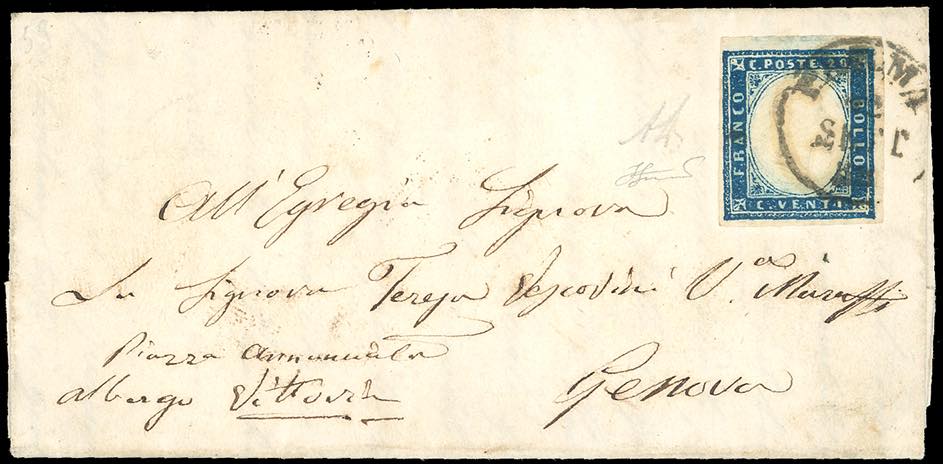 53
C. POSTE 20
FRANCO
BOLLO
C. VENTI
PARMA
All'Egregia Signora
La Signora Teresa Vescovini V.a
Piazza Annunciata
albergo Vittoria
Genova